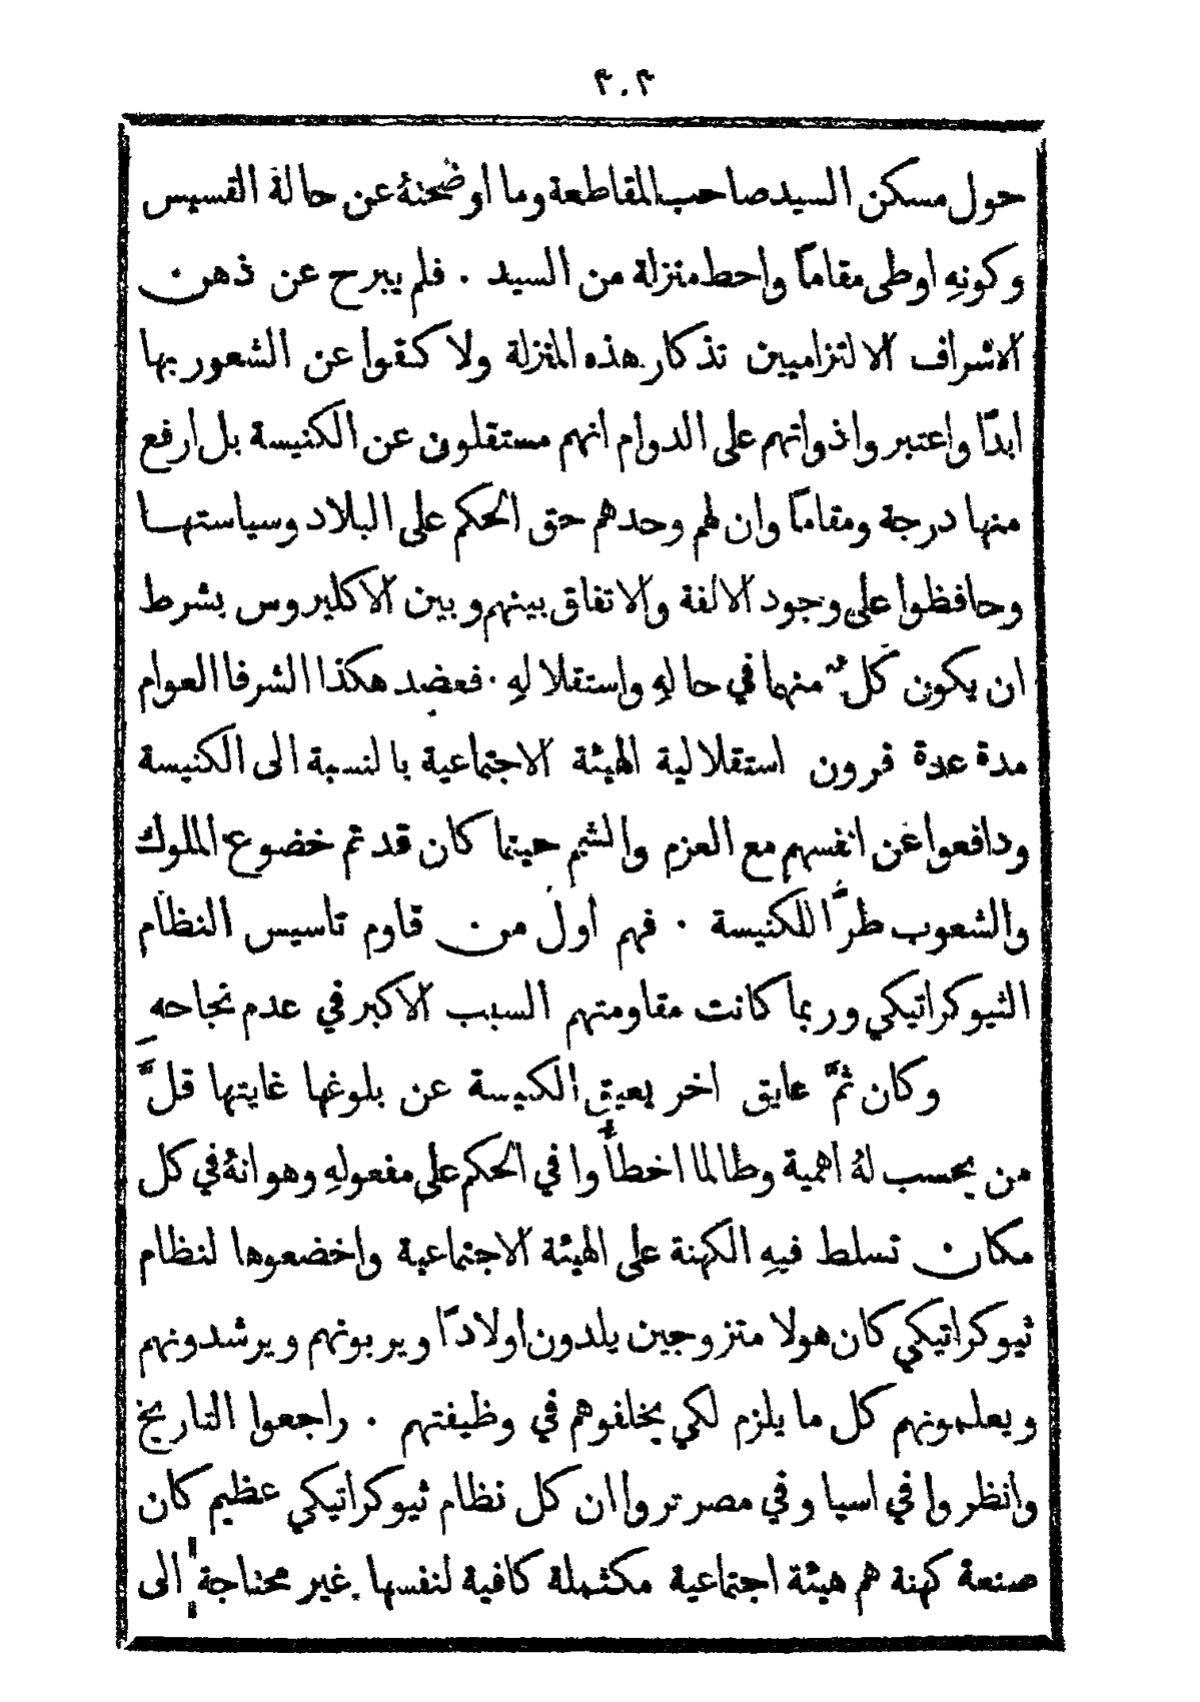 ٣٠٣
حول مسكن السيد صاحب المقاطعة وما اوضحنهُ عن حالة القسيس
وكونِهِ اوطى مقاماً واحط منزلة من السيد . فلم يبرح عن ذهن
الاشراف الالتزاميين تذكار هذه المنزلة ولا كفوا عن الشعور بها
ابداً واعتبروا ذواتهم على الدوام انهم مستقلون عن الكنيسة بل ارفع
منها درجة ومقاماً وان لهم وحدهم حق الحكم على البلاد وسياستها
وحافظوا على وجود الالفة والاتفاق بينهم وبين الاكليروس بشرط
ان يكون كلٌّ منهما في حالهِ واستقلالهِ . فعضد هكذا الشرفا العوام
مدة عدة قرون استقلالية الهيئة الاجتماعية بالنسبة الى الكنيسة
ودافعوا عن انفسهم مع العزم والشيم حينما كان قد تم خضوع الملوك
والشعوب طرًّا للكنيسة . فهم أول من قاوم تاسيس النظام
الثيوكراتيكي وربما كانت مقاومتهم السبب الاكبر في عدم نجاحهِ
وكان ثمَّ عايق اخر يعيق الكنيسة عن بلوغها غايتها قلَّ
من يحسب لهُ اهمية وطالما اخطأوا في الحكم على مفعولهِ وهو انهُ في كل
مكان تسلط فيهِ الكهنة على الهيئة الاجتماعية واخضعوها لنظام
ثيوكراتيكي كان هولا متزوجين يلدون اولاداً ويربونهم ويرشدونهم
ويعلمونهم كل ما يلزم لكي يخلفوهم في وظيفتهم . راجعوا التاريخ
وانظروا في اسيا وفي مصر تروا ان كل نظام ثيوكراتيكي عظيم كان
صنعة كهنة هم هيئة اجتماعية مكتملة كافية لنفسها . غير محتاجة الى